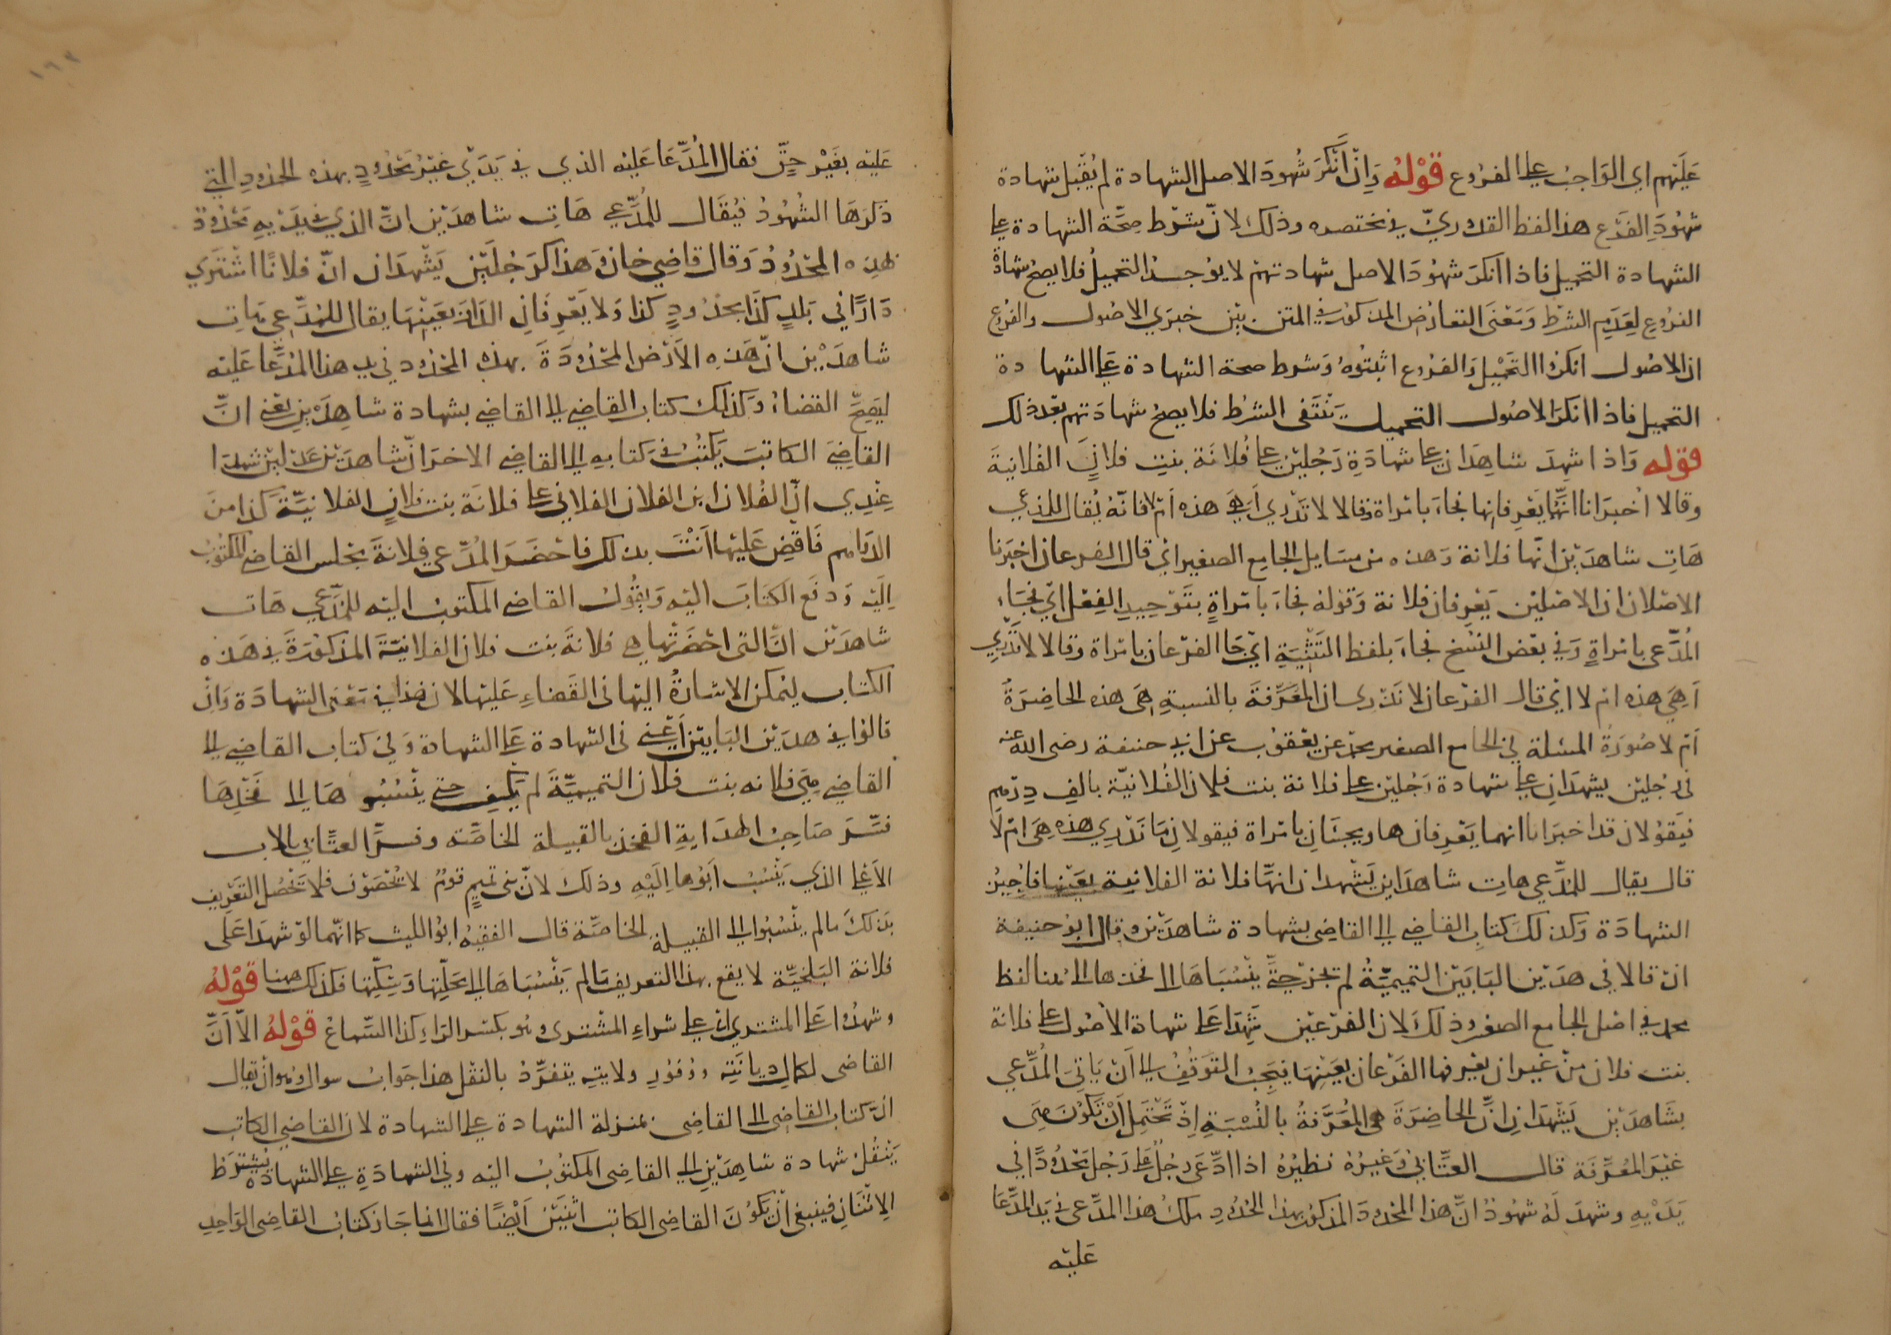 عَلَيهم اي الوَاجبُ على الفرُوع قوْلهُ وَاِنْ اَنْكَرَ شُهودَ الاصل الشهادة لم يُقبَل شهادة
شهُودِ الفَرْع هذا لفظ القدُوريّ في مختصره وذلك لانّ شرْط صحّة الشهادة على
الشهادة التحميل فاذا انكرَ شهُودَ الاصل شهادتهم لا يوُجدُ التحميلُ فلا يصحّ شهادةُ
الفروُع لِعَدَمِ الشرْط وَمَعْنَى التعارُض المذكور في المتن بيْن خبرَي الاصُول والفروع
ان الاصُول انكرُوا التحْميْل وَالفرُوع اثبتُوهُ وَشرط صحة الشهادة على الشهادة
التحميل فاذا انكرَ الاصُول التحميل يَنْتَفى الشرط فلا يصحّ شهادَتهم بَعْد ذلك
قوْله وَاذا شهدَ شاهِدَان على شهادَةِ رَجُليْن على فُلانَة بنتِ فلانٍ الفُلانيةَ
وقالا اخْبرَانا انّهُمَا يَعْرِفانِها فجاءَ بامْراة وَقالا لا نَدْرِي اَهيَ هذه اَمْ لا فانّه يُقال للمدّعي
هَاتِ شاهدَيْن انّها فلانة وَهذه من مسَايل الجامِع الصغير اي قال الفرعان اخبَرنا
الاصْلان ان الاصْليْن يَعْرِفان فلانة وَقوْله فجاءَ بامْراةٍ بتَوْحِيدِ الفِعْل اي فجَاءَ
المُدّعى بامْراةٍ وَفي بعْض النسْخ فجاءَ بلفظ التَثْنِيَةِ ايْ جاءا الفرْعان بامْراة وقالا لا نَدْري
اَهِيَ هذه امْ لا ايْ قال الفرْعان لا نَدْرى ان المُعَرَّفةَ بالنسبةِ هىَ هذه الحاضِرَةُ
اَمْ لا صُورَةُ المسئلة في الجامع الصغير محمّد عن يعْقوُب عن ابي حنيفة رضى الله عنه
فى رجُليْن يشهدَانِ على شهادة رَجُليْن على فلانة بنت فلان الفُلانيّة بالفِ دِرْهم
فيَقوْلان قد اخبرَانا انهما يَعْرِفانها ويجيئانِ بامْراة فيقولانِ مَا نَدْرِي هذه هِىَ امْ لا
قال يقال للمدّعي هات شاهدَايْن يَشْهدَان انهّا فلانة الفلانية بعَيْنِها فاجِيزُ
الشهادَة وَكذلكَ كتابُ القاضي الى القاضى بشهادة شاهدَيْن وقال ابوُ حنيفة
انْ قالا فى هذيْن البَابَيْن التميميّةُ لمْ يجُزْ حتّى يَنْسُبَاهَا الى فخذها الى هُنا لفظ
محمّد في اصْل الجامع الصغير وذلكَ لان الفرْعيْن شهِدَا على شهادة الاصُول على فلانة
بنت فلان منْ غيْر ان يعْرفها الفَرْعان بعَيْنِهَا فيَجِبُ التوَقُفُ الى اَنْ يَاتىَ المُدّعي
بشَاهدَيْن يَشْهَدَان انّ الحاضِرَةَ هى المُعَرَّفةُ بالنسْبَةِ اِذْ تَحْتَمِلُ اَنْ تكُوْنَ هِىَ
غيْرَ المُعَرَّفة قال العتّابيّ وَغيرُهُ نظيْرُهُ اذا ادّعَى رَجُل على رَجُل مَحْدُودًا في
يَدَيْهِ وشهدَ لَهُ شهُودٌ انّ هذا المحدُودَ المذكورَ بهذا الحُدُودِ ملكُ هذا المدّعى فى يَدِ المدّعَا
عَليْه
عَليْه بغَيْر حَقٍّ فقال المُدّعَا عَليْه الذي في يَدَيْ غيْرُ مَحْدُودٍ بهذه الحدُودِ التي
ذكرَهَا الشهُودُ فيُقَال للمُدّعي هَاتِ شاهدَيْن انّ الذي في يدَيْهِ مَحْدُودٌ
بهذه الحُدُودُ وَقال قاضي خان وَهذا كرَجُليْن يَشْهدَان انّ فلانًا اشْترى
دَارًا في بَلدِ كذَا بحدُودٍ كذا وَلا يَعْرِفَانِ الدَارَ بعَيْنِهَا يقال للمُدّعِي هَاتِ
شاهدَيْن انّ هَذه الاَرْضَ المحْدُودَةَ بهذه الحُدُود في يد هذا المُدّعَا عَليْه
ليَصِحَّ القضاءُ وَكذلكَ كتابُ القاضي الى القاضي بشهادة شاهِدَيْن يَعْني انّ
القاضيَ الكاتبَ يَكتُبُ في كتابهِ الى القاضي الاخرَ انّ شاهدَيْن عدْليْن شهدَا
عِنْدِي انّ لفُلان ابن الفلان الفلاني على فلانَة بنت فلانٍ الفلانيّة كذا منَ
الدَراهم فَاقْضِ عَليْها اَنْتَ بذلك فاحْضَرَ المُدّعى فلانةَ مجلس القاضى المكتوُبُ
اِليْه وَدفَع الكتابَ اليْه وَيقُولُ القاضى المكتوبُ اليْه للمدّعى هَات
شاهدَيْن انّ التى احْضَرْتَها هى فلانةَ بنت فلان الفلانيّةَ المذكوْرَةَ في هَذه
الكتاب ليُمكنَ الاشارةُ اليْها فى القضاءِ عَليْها لان هذا في مَعْنى الشهادَة وَانْ
قالوُا في هذيْن البَابيْن اَعْنِي فى الشهادة على الشهادة وَفي كتاب القاضي الى
القاضي هِىَ فلانه بنت فلان التميميّةَ لم يَكفِ حتى يَنْسُبُوهَا الى فَخْذِهَا
فسّرَ صَاحِبُ الهدَايةِ الفخذ بالقبيلة الخاصّة وفسرَّ العتّابي بالاب
الاَعْلى الذي يَنْسُبُ اَبوُها اِليْهِ وذلك لانّ بنى تميمٍ قومٌ لا يُحْصَوْن فلا يَحْصُل التَعْرِيف
بذَلكَ مَا لم يَنْسُبوُا الى القبيلة الخاصّة قال الفقيهُ ابوُ الليث كما انّهما لوْ شهدَا عَلى
فلانة البَلخيّة لا يقع بهذا التعريف مَا لم يَنْسُبَاهَا الى مَحَلّتِها وَسِكّتِها فكذلك هُهنا قوْلهُ
وشهدُوا على المشترى ايْ على شراءِ المشترى وهُو بكسر الرَاءِ كذا السّماعُ قوْلهُ الاّ اَنَّ
القاضى لكمالِ دِيانَتِه ووُفوُرِ ولايتِه يتفرّدُ بالنقْل هذا جَوابُ سوال وهوان يقال
انّ كتابَ القاضى الى القاضى بمنزلة الشهادة على الشهادة لان القاضي الكاتبَ
يَنْقُلُ شهادة شاهِدَيْنِ الى القاضى المكتوْبُ اليْه وفى الشهادَةِ على الشهادَة يُشترَط
الاِثْنَانِ فيَنبَغى اَنْ يكُونَ القاضى الكاتب اثنَيْن اَيْضًا فقال انما جَازَ كتابُ القاضى الوَاحِدِ